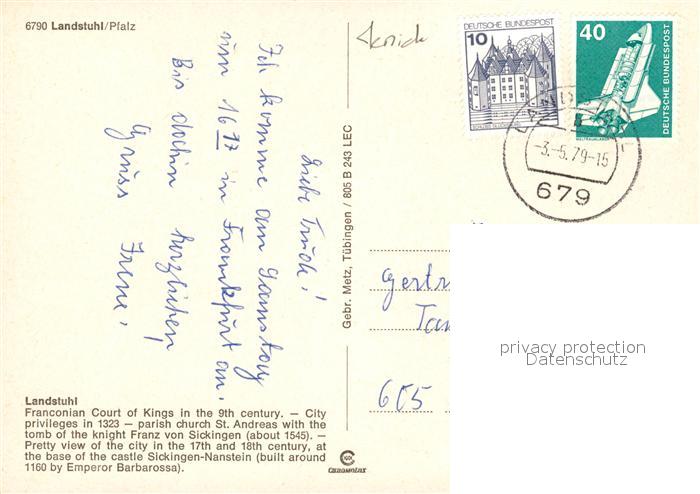 6790 Landstuhl/Pfalz
Liebe Trude!
Ich komme am Samstag
um 16 17 in Frankfurt an.
Bis dahin herzlichen
Gruss Irene.
Landstuhl
Franconian Court of Kings in the 9th century. — City
privileges in 1323 — parish church St. Andreas with the
tomb of the knight Franz von Sickingen (about 1545). —
Pretty view of the city in the 17th and 18th century, at
the base of the castle Sickingen-Nanstein (built around
1160 by Emperor Barbarossa).
Gebr. Metz, Tübingen / 805 B 243 LEC
10
DEUTSCHE BUNDESPOST
40
DEUTSCHE BUNDESPOST
WELTRAUMLABOR
-3.-5.79-15
679
Gertr
605
privacy protection
Datenschutz